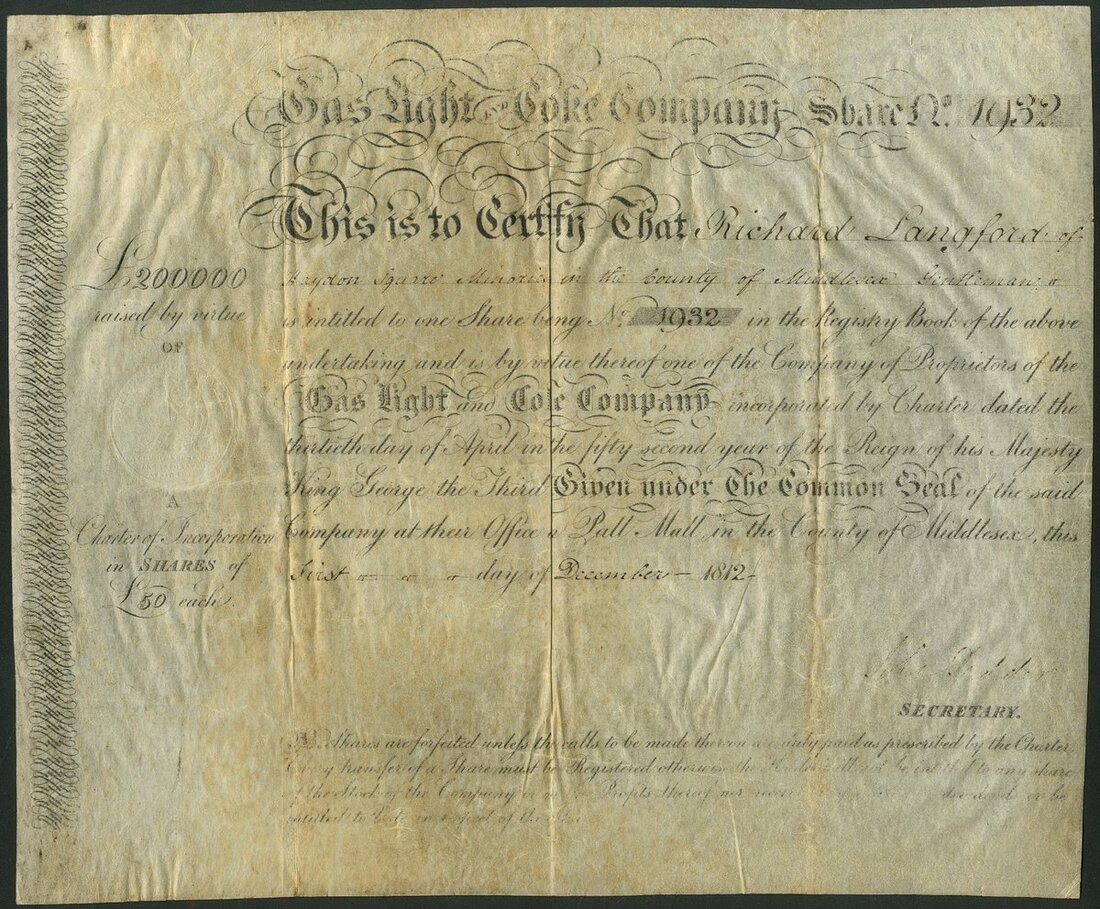 Gas Light and Coke Company Share No. 1932
This is to Certify That Richard Langford of
Haydon Square Minories in the County of Middlesex Gentleman
is intitled to one Share being No. 1932 in the Registry Book of the above
undertaking and is by virtue thereof one of the Company of Proprietors of the
Gas Light and Coke Company incorporated by Charter dated the
thirtieth day of April in the fifty second year of the Reign of his Majesty
King George the Third Given under The Common Seal of the said
Company at their Office in Pall Mall, in the County of Middlesex, this
First day of December 1812
£200000
raised by virtue
OF
A
Charter of Incorporation
in SHARES of
£50 each.
SECRETARY.
Shares are forfeited unless the calls to be made thereon are duly paid as prescribed by the Charter
Every transfer of a Share must be Registered otherwise the be intitled to any share
of the Stock of the Company or the Profits thereof nor dividend or be
entitled to Vote in respect of